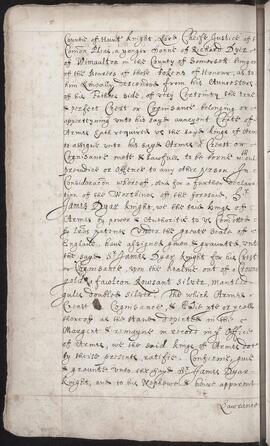 Countie of Hunt Knight, Lord Cheife Justice of
Comon Pleas, a yonger Sonne of Richard Dyar
of Wincaulton in the County of Somerset
of the of those tokens of Honour, as to
him lineally descended from his Auncestors
of his Fathers side, of very Certeinty the true
& perfect Creast or Cognisance belonging or
apperteyning unto his sayd auncyent Coate of
Armes hath required us the sayd Kings of Armes
to assigne unto his sayd Armes a Creast or
Cognisance meet & Lawfull to be borne without
prejudice or Offence to any other person. In
Consideracon whereof, and for a further declara
tion of the Worthines of the foresaid Sr
James Dyar Knight, we the said Kings of
Armes by power & Authoritie to us Comitted
by letters patents Under the greate Seale of
England, have assigned given & graunted unto
the sayd Sr James Dyar Knight for his Creast
or Cognisance, upon the healme out of a Crowne
gold, a faulcon Rowsant Silver, mantled
gules doubled Silver. The which Armes
Creast Cognisance, & every
thereof as the same depicted in this
Margent & remayne in record in Office
of Armes, we the said Kings of Armes doe
by theise presents, ratifie, Confirme, give
& graunte unto the sayd Sr James Dyar
Knight, and to his Nephewe & heire apparent
Lawrence